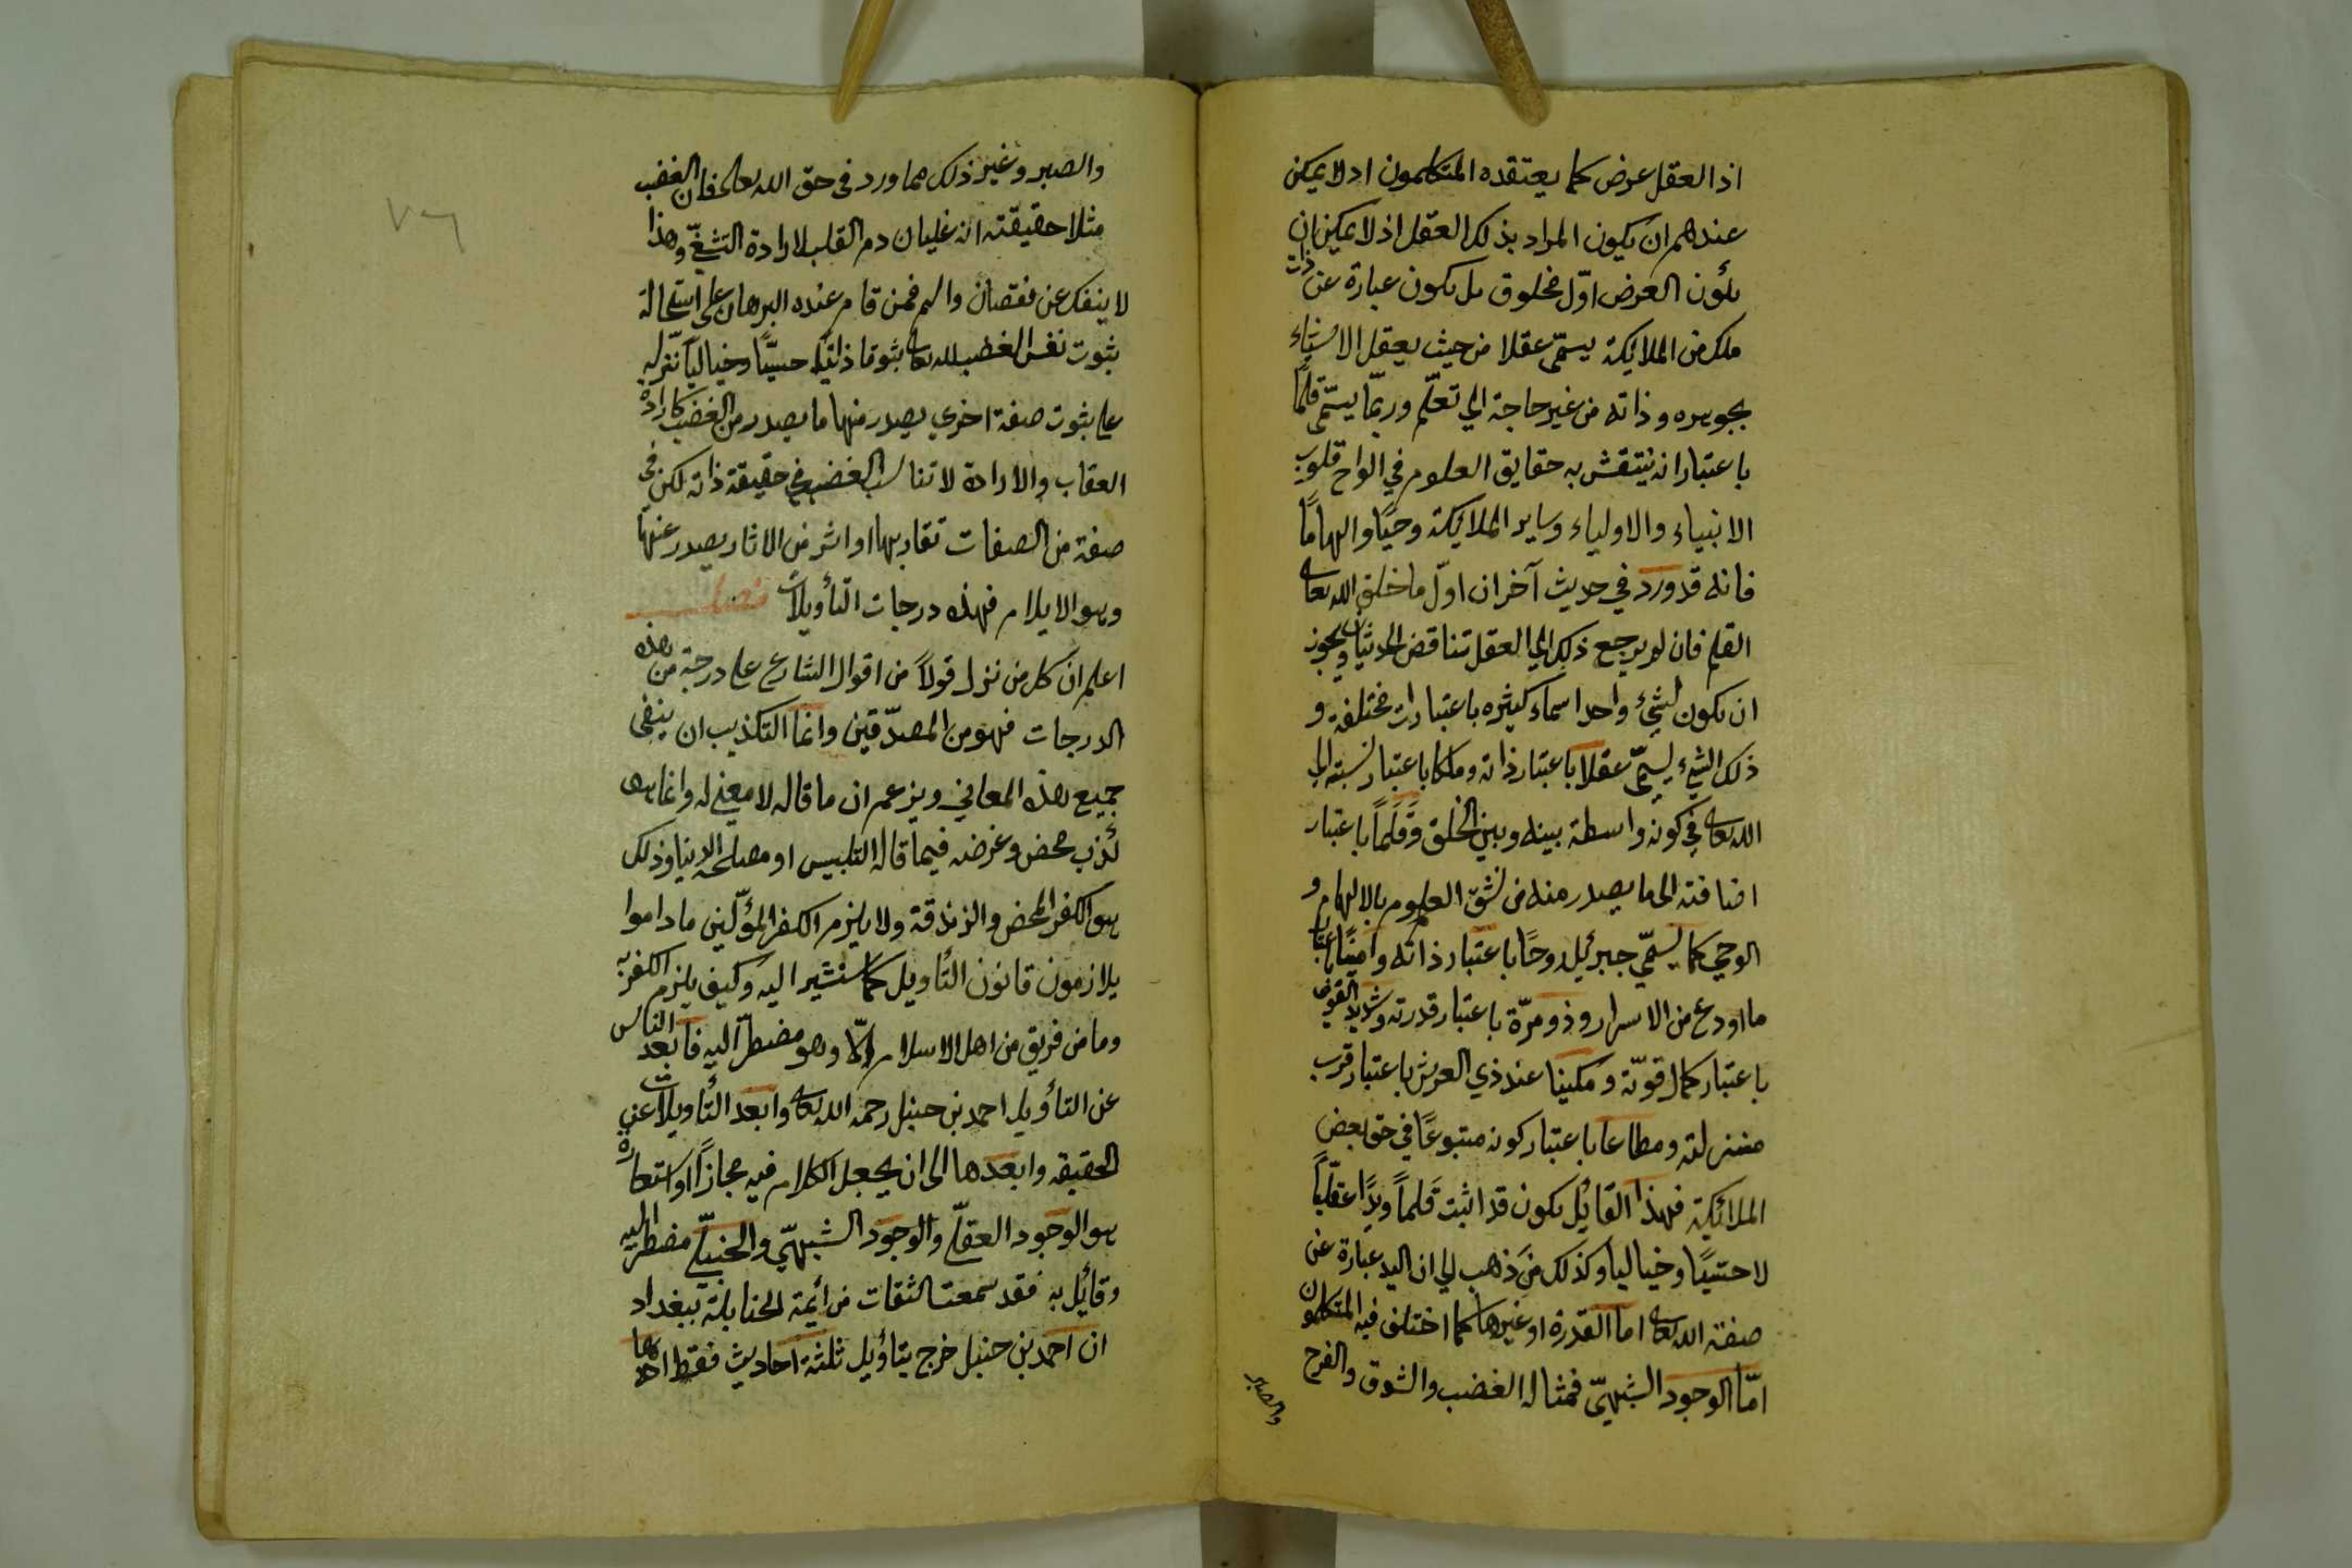 اذ العقل عرض كما يعتقده المتكلمون اذ لا يمكن
عندهم ان يكون المراد بذلك العقل اذ لا يمكن ان
يكون العرض اوّل مخلوق بل يكون عبارة عن ذات
ملك من الملائكة يسمّى عقلا من حيث يعقل الاشياء
بجوهره وذاته من غير حاجة الي تعلّم وربّما يسمّى قلمًا
باعتبار انه ينتقش به حقايق العلوم في الواح قلوب
الانبياء والاولياء وساير الملائكة وحيًا والهامًا
فانه قد ورد في حديث آخر ان اوّل ما خلق الله تعالى
القلم فان لم يرجع ذلك الي العقل تناقض الحديثان ويجوز
ان يكون لشيء واحد اسماء كثيره باعتبارات مختلفة و
ذلك الشيء يسمّى عقلا باعتبار ذاته وملكا باعتبار نسبته الي
الله تعالى في كونه واسطة بينه وبين الخلق وقَلَماً باعتبار
اضافته الى ما يصدر منه من نقش العلوم بالالهام و
الوحي كما يسمّي جبرئيل روحًا باعتبار ذاته وامينًا باعتبار
ما اودع من الاسرار وذو مرّة باعتبار قدرته وشديد القوى
باعتبار كمال قوّته ومكينا عند ذي العرش باعتبار قرب
منزلته ومطاعا باعتبار كونه متبوعًا في حق بعض
الملائكة فهذا القائل يكون قد اثبت قَلماً ويدًا عقليًّاً
لا حسّيًا وخياليا وكذلك من ذهب الي ان اليد عبارة عن
صفة الله تعالى اما القدرة او غيرها كما اختلف فيه المتكلمون
امّا الوجود الشبهيّ فمثاله الغضب والشوق والفرح
والصبر
والصبر وغير ذلك مما ورد في حق الله تعالى فان الغضب
مثلا حقيقته انه غليان دم القلب لارادة التشفّي وهذا
لا ينفك عن نقصان والم فمن قام عنده البرهان على استحالة
ثبوت نفس الغضب لله تعالى ثبوتا ذاتيًا حسيًّا وخياليًا نزله
على ثبوت صفة اخري يصدر منها ما يصدر من الغضب كارادة
العقاب والارادة لا تناسب الغضب في حقيقة ذاته لكن في
صفة من الصفات تقاربها او اثر من الاثار يصدر عنها
وهو الايلام فهذه درجات التأويلات فصل
اعلم ان كل من نزل قولاً من اقوال الشارع على درجة من هذه
الدرجات فهو من المصدّقين وانما التكذيب ان ينفى
جميع هذه المعاني ويزعم ان ما قاله لا معنى له وانما هو
كذب محض وغرضه فيما قاله التلبيس او مصلحة الدنيا وذلك
هو الكفر المحض والزندقة ولا يلزم الكفر المؤلّين ما داموا
يلازمون قانون التأويل كما سنشير اليه وكيف يلزم الكفر به
وما من فريق من اهل الاسلام الّا وهو مضطرّ اليه فابعد الناس
عن التأويل احمد بن حنبل رحمه الله تعالى وابعد التأويلات عن
الحقيقه وابعدها الى ان يجعل الكلام فيه مجازاً او استعارة
هو الوجود العقلّي والوجود الشبهيّ والحنبلّي مضطر اليه
وقائل به فقد سمعت الثقات من أئمة الحنابلة ببغداد
ان احمد بن حنبل خرج بتأويل ثلثة احاديث فقط احدها